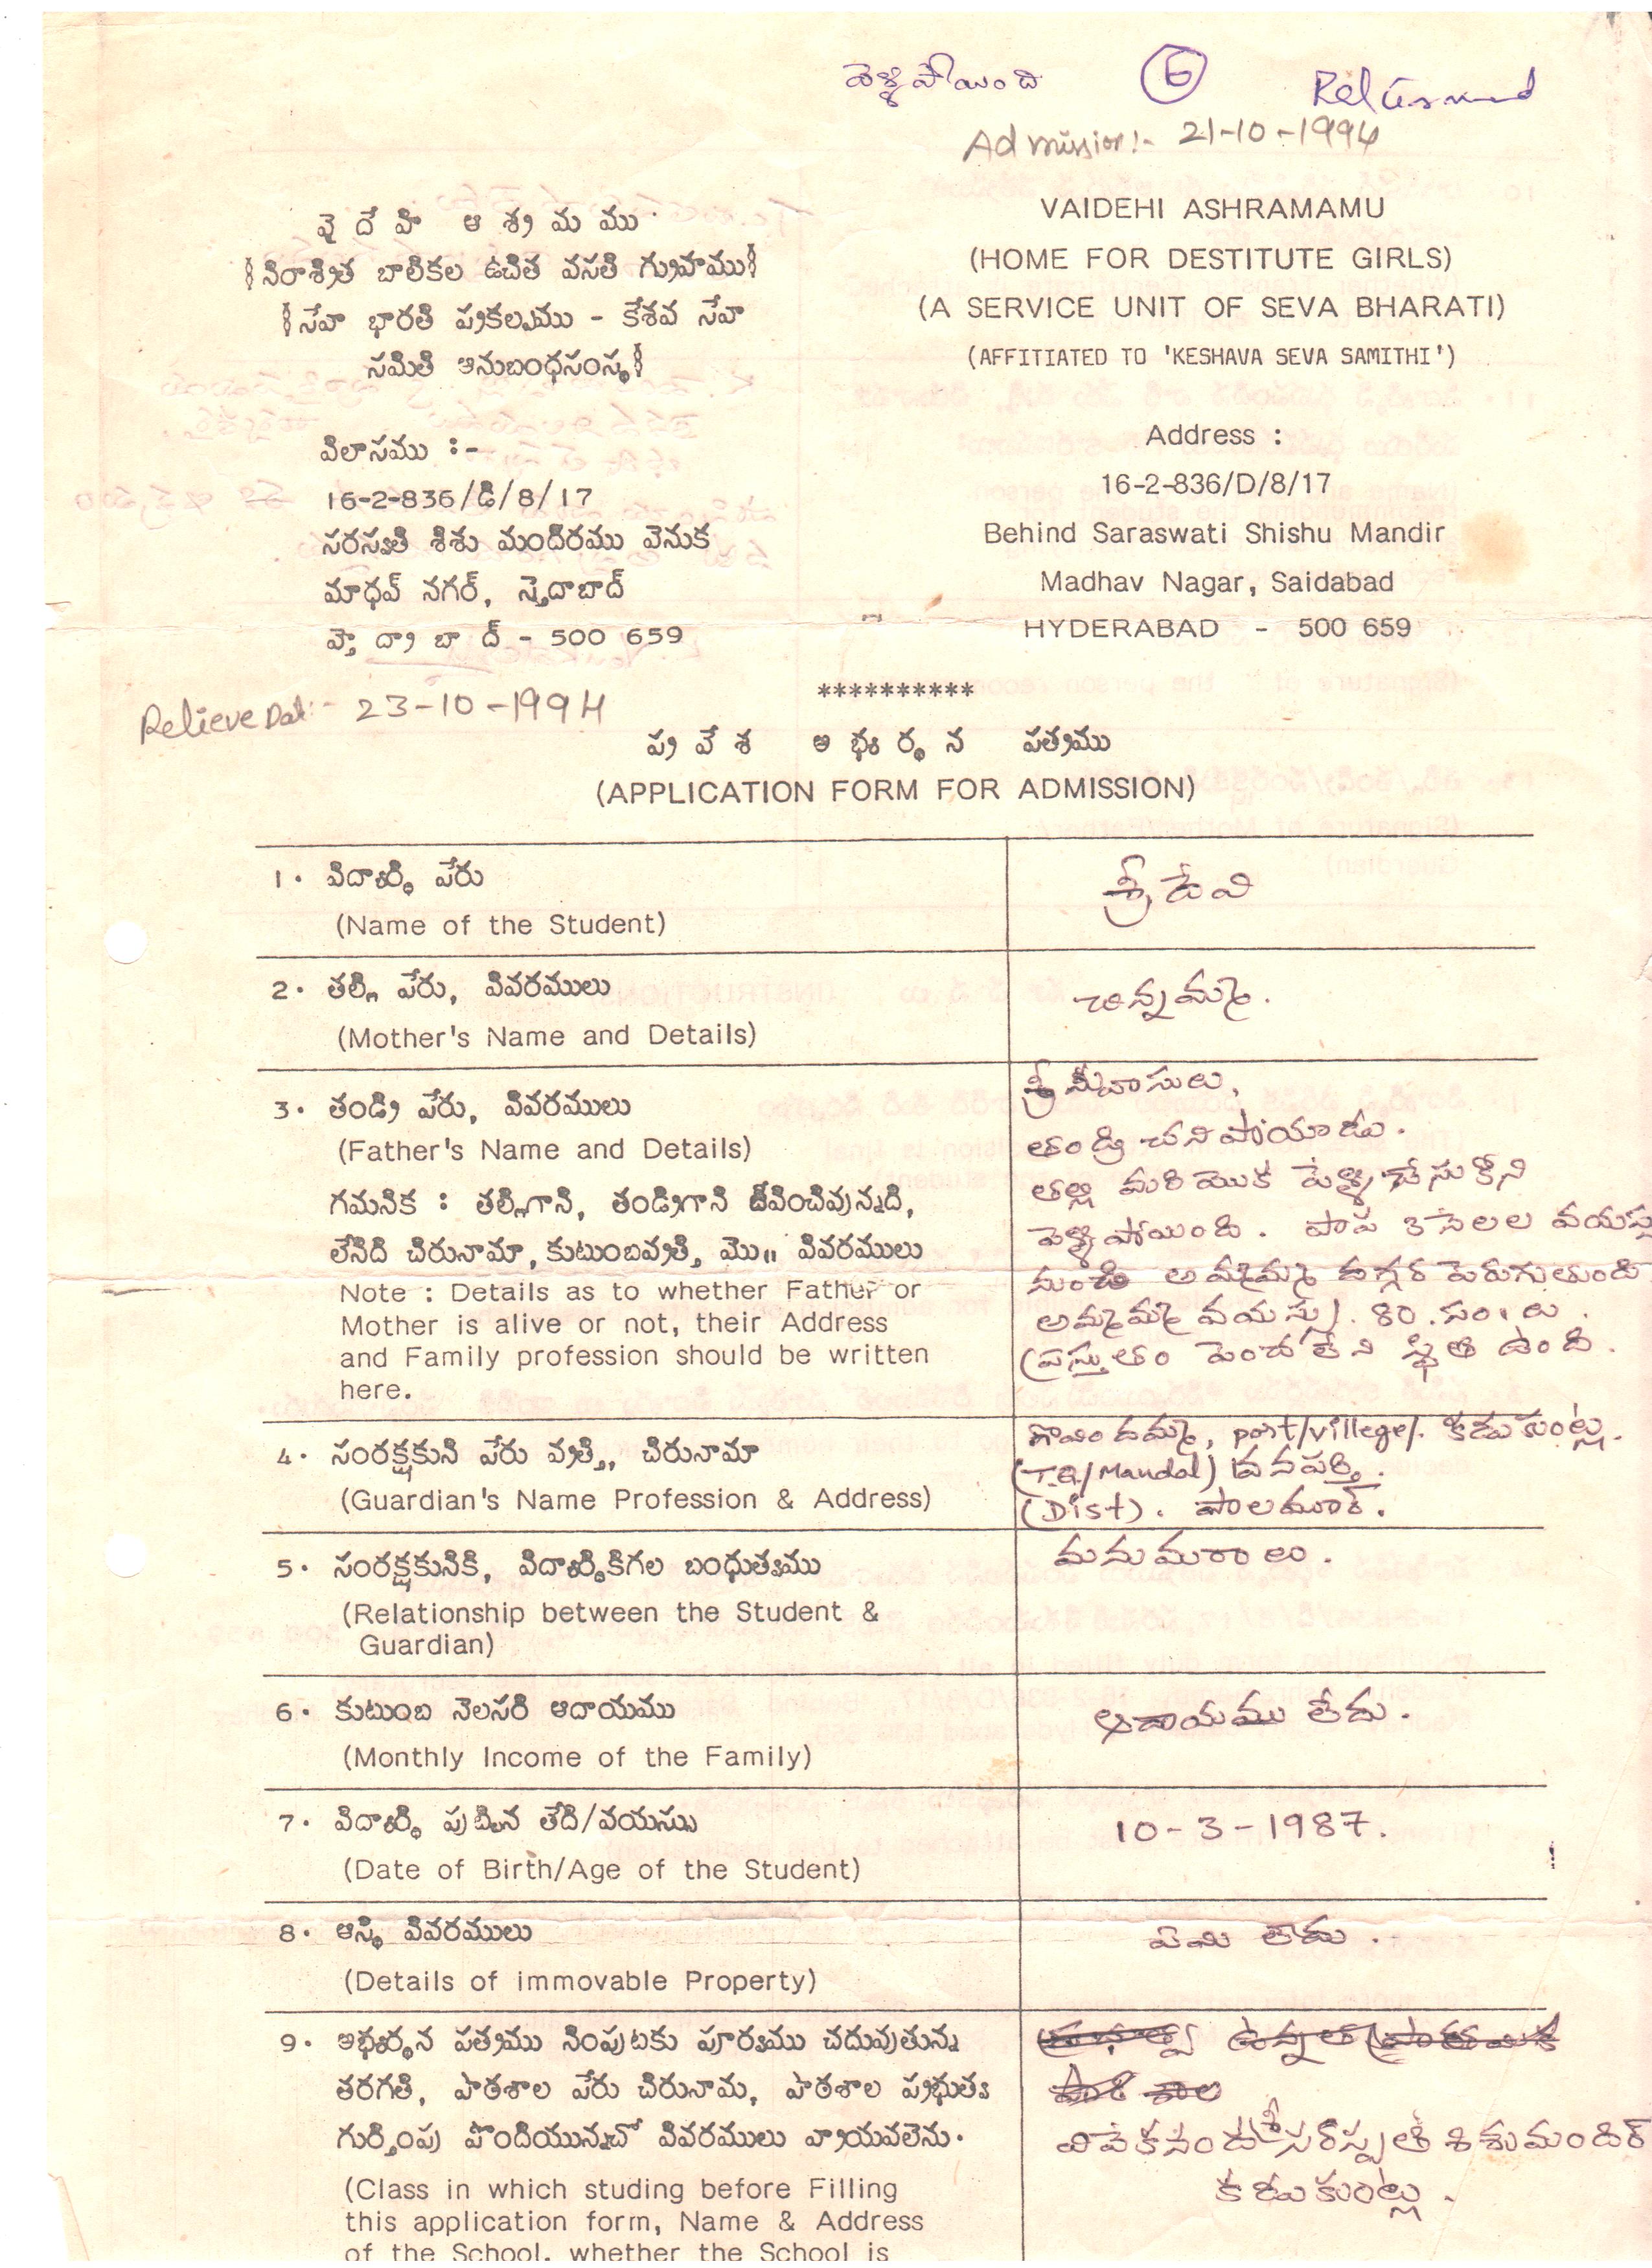 వెళ్ళిపోయింది 6
Admission:- 21-10-1994
వై దే హి ఆ శ్ర మ ము
(నిరాశ్రిత బాలికల ఉచిత వసతి గృహము)
(సేవా భారతి ప్రకల్పము - కేశవ సేవా
సమితి అనుబంధసంస్థ)
VAIDEHI ASHRAMAMU
(HOME FOR DESTITUTE GIRLS)
(A SERVICE UNIT OF SEVA BHARATI)
(AFFITIATED TO 'KESHAVA SEVA SAMITHI')
విలాసము :-
16-2-836/డి/8/17
సరస్వతి శిశు మందిరము వెనుక
మాధవ్ నగర్, సైదాబాద్
హై ద్రా బా ద్ - 500 659
Address :
16-2-836/D/8/17
Behind Saraswati Shishu Mandir
Madhav Nagar, Saidabad
HYDERABAD - 500 659
Relieve Dat:- 23-10-1994
**********
ప్ర వే శ అ భ్య ర్థ న పత్రము
(APPLICATION FORM FOR ADMISSION)
1. విద్యార్థి పేరు
(Name of the Student)
శ్రీదేవి
2. తల్లి పేరు, వివరములు
(Mother's Name and Details)
చిన్నమ్మ.
3. తండ్రి పేరు, వివరములు
(Father's Name and Details)
గమనిక : తల్లిగాని, తండ్రిగాని జీవించివున్నది,
లేనిది చిరునామా, కుటుంబవృత్తి, మొ॥ వివరములు
Note : Details as to whether Father or
Mother is alive or not, their Address
and Family profession should be written
here.
శ్రీనివాసులు,
తండ్రి చనిపోయాడు.
తల్లి మరియొక పెళ్ళి చేసుకొని
వెళ్ళిపోయింది. పాప 3 నెలల వయస్సు
నుండి అమ్మమ్మ దగ్గర పెరుగుతుంది
అమ్మమ్మ వయస్సు. 80. సం.లు.
ప్రస్తుతం పెంచలేని స్థితి ఉంది.
4. సంరక్షకుని పేరు వృత్తి, చిరునామా
(Guardian's Name Profession & Address)
గోవిందమ్మ, post/villege/. కడుకుంట్ల.
(T.Q/Mandal) వనపర్తి.
(Dist). పాలమూర్.
5. సంరక్షకునికి, విద్యార్థికిగల బంధుత్వము
(Relationship between the Student &
Guardian)
మనుమరాలు.
6. కుటుంబ నెలసరి ఆదాయము
(Monthly Income of the Family)
ఆదాయము లేదు.
7. విద్యార్థి పుట్టిన తేది/వయస్సు
(Date of Birth/Age of the Student)
10-3-1987.
8. ఆస్థి వివరములు
(Details of immovable Property)
ఏమి లేదు.
9. అభ్యర్థన పత్రము నింపుటకు పూర్వము చదువుతున్న
తరగతి, పాఠశాల పేరు చిరునామ, పాఠశాల ప్రభుత్వ
గుర్తింపు పొందియున్నచో వివరములు వ్రాయవలెను.
(Class in which studing before Filling
this application form, Name & Address
of the School, whether the School is
ఉన్నత ప్రాథమిక
పాఠశాల
వివేకనంద శ్రీ సరస్వతి శిశుమందిర్
కడుకుంట్ల.